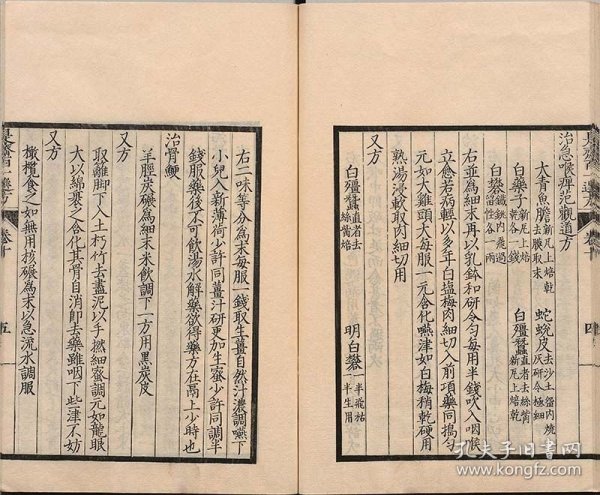 治急喉痹范觀道方
大青魚膽新瓦上焙乾去膜取末
蛇蛻皮去沙土盤内燒灰研令極細
白藥子新瓦上焙乾各一錢
白殭蠶直者去絲觜新瓦上焙乾
白礬鐵銚内飛過留性各一兩
右並爲細末再以乳鉢和研令勻每用半錢吹入咽喉
立愈若病輕以多年白塩梅肉細切入前項藥同搗勻
元如大雞頭大每服一元含化嚥津如白梅稍乾硬用
熟湯浸軟取肉細切用
又方
白殭蠶直者去絲觜焙
明白礬一半飛枯一半生用
四
右二味等分爲末每服一錢取生薑自然汁濃調嚥下
小兒入新薄荷少許同薑汁研更加生蜜少許同調半
錢服藥後不可飲湯水解藥欲得藥方在鬲上少時也
治骨鯁
羊脛炭碾爲細末米飲調下一方用黑炭皮
又方
取籬脚下入土朽竹去盡泥以手撚細蜜調元如龍眼
大以綿裹之含化其骨自消即去藥雖咽下些津不妨
又方
橄欖食之如無用核碾爲末以急流水調服
卷十
五
孔夫子旧書网
www.kongfz.com